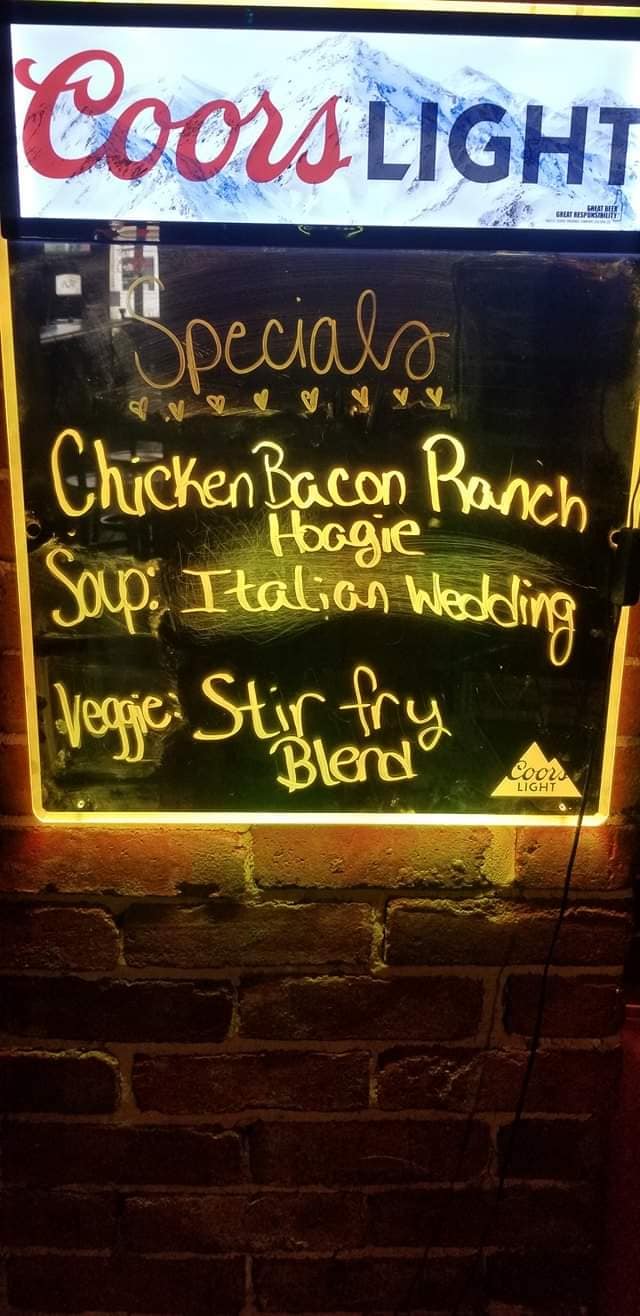 Coors LIGHT
GREAT BEER
GREAT RESPONSIBILITY
Specials
Chicken Bacon Ranch
Hoagie
Soup: Italian Wedding
Veggie: Stir fry
Blend
Coors
LIGHT